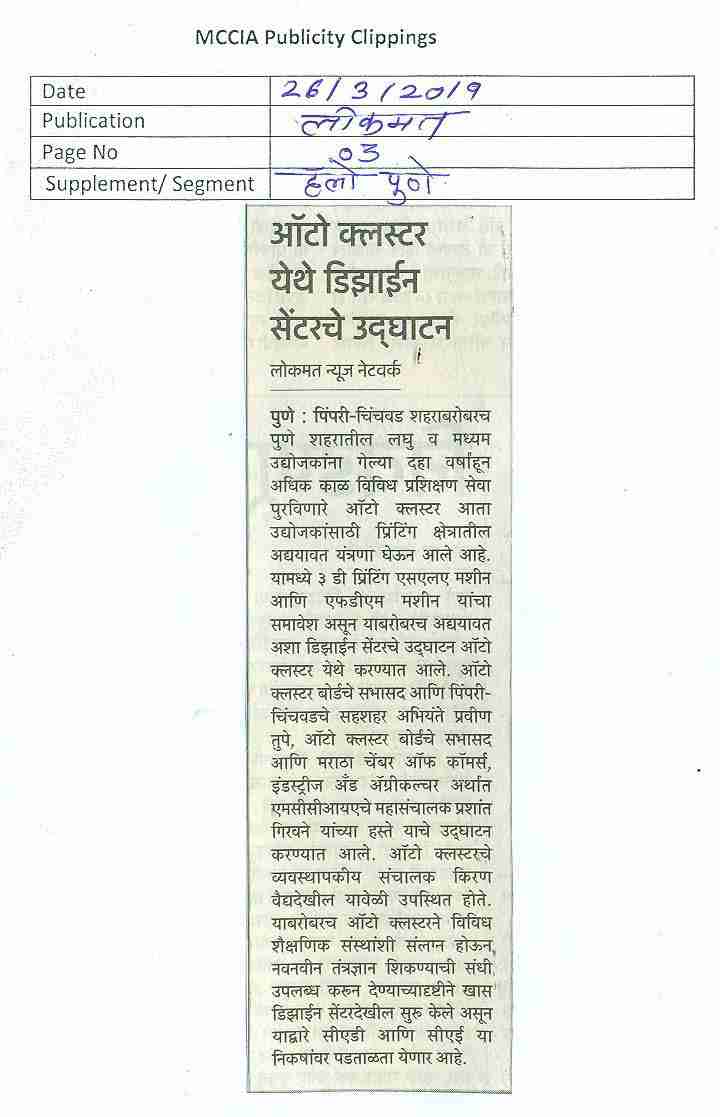 MCCIA Publicity Clippings
Date 26/3/2019
Publication लोकमत
Page No 03
Supplement/ Segment हॅलो पुणे
ऑटो क्लस्टर
येथे डिझाईन
सेंटरचे उद्‌घाटन
लोकमत न्यूज नेटवर्क
पुणे : पिंपरी-चिंचवड शहराबरोबरच
पुणे शहरातील लघु व मध्यम
उद्योजकांना गेल्या दहा वर्षांहून
अधिक काळ विविध प्रशिक्षण सेवा
पुरविणारे ऑटो क्लस्टर आता
उद्योजकांसाठी प्रिंटिंग क्षेत्रातील
अद्ययावत यंत्रणा घेऊन आले आहे.
यामध्ये ३ डी प्रिंटिंग एसएलए मशीन
आणि एफडीएम मशीन यांचा
समावेश असून याबरोबरच अद्ययावत
अशा डिझाईन सेंटरचे उद्‌घाटन ऑटो
क्लस्टर येथे करण्यात आले. ऑटो
क्लस्टर बोर्डचे सभासद आणि पिंपरी-
चिंचवडचे सहशहर अभियंते प्रवीण
तुपे, ऑटो क्लस्टर बोर्डचे सभासद
आणि मराठा चेंबर ऑफ कॉमर्स,
इंडस्ट्रीज अँड अ‍ॅग्रीकल्चर अर्थात
एमसीसीआयएचे महासंचालक प्रशांत
गिरबने यांच्या हस्ते याचे उद्‌घाटन
करण्यात आले. ऑटो क्लस्टरचे
व्यवस्थापकीय संचालक किरण
वैद्यदेखील यावेळी उपस्थित होते.
याबरोबरच ऑटो क्लस्टरने विविध
शैक्षणिक संस्थांशी संलग्न होऊन,
नवनवीन तंत्रज्ञान शिकण्याची संधी
उपलब्ध करून देण्याच्यादृष्टीने खास
डिझाईन सेंटरदेखील सुरू केले असून
याद्वारे सीएडी आणि सीएई या
निकषांवर पडताळता येणार आहे.